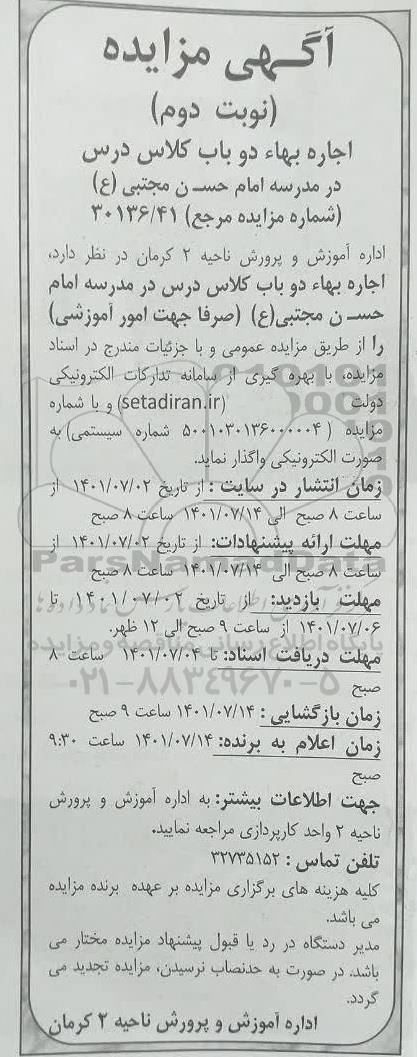 آگهی مزایده
(نوبت دوم)
اجاره بهاء دو باب کلاس درس
در مدرسه امام حسن مجتبی (ع)
(شماره مزایده مرجع) ۳۰۱۳۶/۴۱
اداره آموزش و پرورش ناحیه ۲ کرمان در نظر دارد،
اجاره بهاء دو باب کلاس درس در مدرسه امام
حسن مجتبی(ع) (صرفا جهت امور آموزشی)
را از طریق مزایده عمومی و با جزئیات مندرج در اسناد
مزایده، با بهره گیری از سامانه تدارکات الکترونیکی
دولت (setadiran.ir) و با شماره
مزایده (۵۰۰۱۰۳۰۱۳۶۰۰۰۰۰۴ شماره سیستمی) به
صورت الکترونیکی واگذار نماید.
زمان انتشار در سایت : از تاریخ ۱۴۰۱/۰۷/۰۲ از
ساعت ۸ صبح الی ۱۴۰۱/۰۷/۱۴ ساعت ۸ صبح
مهلت ارائه پیشنهادات: از تاریخ ۱۴۰۱/۰۷/۰۲ از
ساعت ۸ صبح الی ۱۴۰۱/۰۷/۱۴ ساعت ۸ صبح
مهلت بازدید: از تاریخ ۱۴۰۱/۰۷/۰۲ تا
۱۴۰۱/۰۷/۰۶ از ساعت ۹ صبح الی ۱۲ ظهر.
مهلت دریافت اسناد: تا ۱۴۰۱/۰۷/۰۴ ساعت ۸
صبح
زمان بازگشایی : ۱۴۰۱/۰۷/۱۴ ساعت ۹ صبح
زمان اعلام به برنده: ۱۴۰۱/۰۷/۱۴ ساعت ۹:۳۰
صبح
جهت اطلاعات بیشتر: به اداره آموزش و پرورش
ناحیه ۲ واحد کارپردازی مراجعه نمایید.
تلفن تماس : ۳۲۷۳۵۱۵۲
کلیه هزینه های برگزاری مزایده بر عهده برنده مزایده
می باشد.
مدیر دستگاه در رد یا قبول پیشنهاد مزایده مختار می
باشد. در صورت به حدنصاب نرسیدن، مزایده تجدید می
گردد.
اداره آموزش و پرورش ناحیه ۲ کرمان
ParsNamadData
پایگاه اطلاع رسانی مناقصه و مزایده
۰۲۱-۸۸۳۴۹۶۷۰-۵